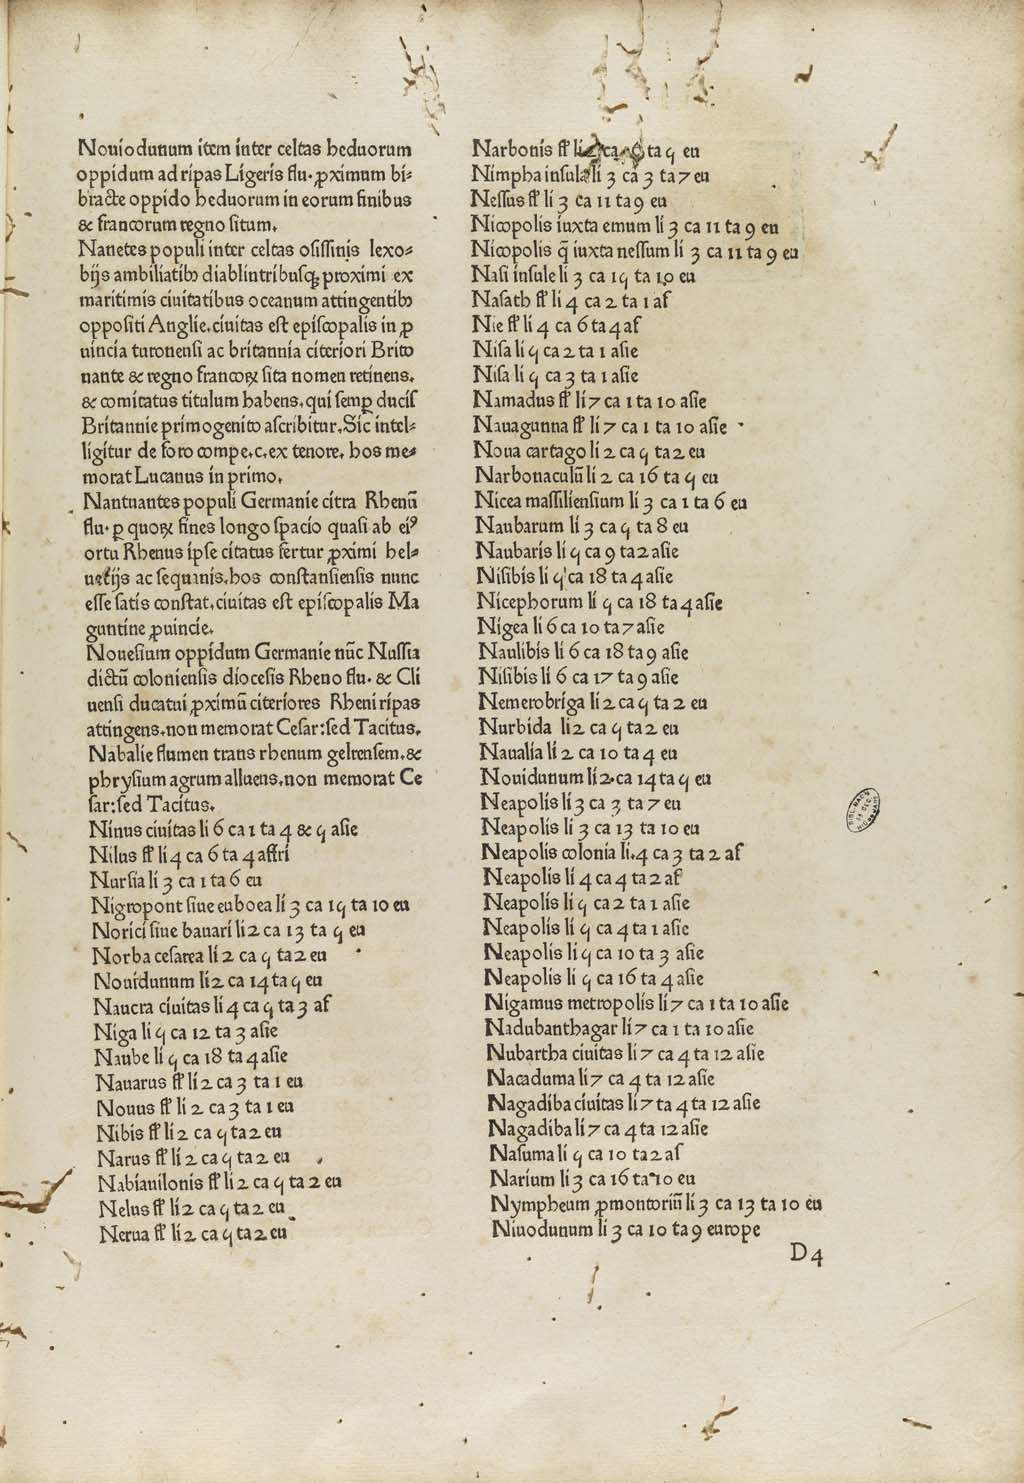 Nouiodunum item inter celtas heduorum
oppidum ad ripas Ligeris flu. ꝓximum bi⸗
bracte oppido heduorum in eorum finibus
& francorum regno situm.
Nanetes populi inter celtas osissinis lexo⸗
bijs ambiliatibꝫ diablintribusqꝫ proximi ex
maritimis ciuitatibus oceanum attingentibꝫ
oppositi Anglie. ciuitas est episcopalis in ꝓ
uincia turonensi ac britannia citeriori Brito
nante & regno francoꝝ sita nomen retinens.
& comitatus titulum habens. qui semꝑ ducis
Britannie primogenito ascribitur. Sic intel⸗
ligitur de foro compe. c. ex tenore. hos me⸗
morat Lucanus in primo.
Nantuantes populi Germanie citra Rhenū
flu. ꝑ quoꝝ fines longo spacio quasi ab eiꝰ
ortu Rhenus ipse citatus fertur ꝓximi hel⸗
uetijs ac sequanis. hos constansiensis nunc
esse satis constat. ciuitas est episcopalis Ma
guntine ꝓuincie.
Nouesium oppidum Germanie nūc Nussia
dictū coloniensis diocesis Rheno flu. & Cli
uensi ducatui ꝓximū citeriores Rheni ripas
attingens. non memorat Cesar: sed Tacitus.
Nabalie flumen trans rhenum gelrensem. &
phrysium agrum alluens. non memorat Ce
sar: sed Tacitus.
Ninus ciuitas li 6 ca 1 ta 4 & 5 asie
Nilus fł li 4 ca 6 ta 4 affri
Nursia li 3 ca 1 ta 6 eu
Nigropont siue euboea li 3 ca 15 ta 10 eu
Norici siue bauari li 2 ca 13 ta 5 eu
Norba cesarea li 2 ca 5 ta 2 eu
Nouidunum li 2 ca 14 ta 5 eu
Naucra ciuitas li 4 ca 5 ta 3 af
Niga li 5 ca 12 ta 3 asie
Naube li 5 ca 18 ta 4 asie
Nauarus fł li 2 ca 3 ta 1 eu
Nouus fł li 2 ca 3 ta 1 eu
Nibis fł li 2 ca 5 ta 2 eu
Narus fł li 2 ca 5 ta 2 eu
Nabiauilonis fł li 2 ca 5 ta 2 eu
Nelus fł li 2 ca 5 ta 2 eu
Nerua fł li 2 ca 5 ta 2 eu
Narbonis fł li ca ta 5 eu
Nimpha insula li 3 ca 3 ta 7 eu
Nessus fł li 3 ca 11 ta 9 eu
Nicopolis iuxta emum li 3 ca 11 ta 9 eu
Nicopolis q̄ iuxta nessum li 3 ca 11 ta 9 eu
Nasi insule li 3 ca 15 ta 10 eu
Nasath fł li 4 ca 2 ta 1 af
Nie fł li 4 ca 6 ta 4 af
Nisa li 5 ca 2 ta 1 asie
Nisa li 5 ca 3 ta 1 asie
Namadus fł li 7 ca 1 ta 10 asie
Nauagunna fł li 7 ca 1 ta 10 asie
Noua cartago li 2 ca 5 ta 2 eu
Narbonaculū li 2 ca 16 ta 5 eu
Nicea massiliensium li 3 ca 1 ta 6 eu
Naubarum li 3 ca 5 ta 8 eu
Naubaris li 5 ca 9 ta 2 asie
Nisibis li 5 ca 18 ta 4 asie
Nicephorum li 5 ca 18 ta 4 asie
Nigea li 6 ca 10 ta 7 asie
Naulibis li 6 ca 18 ta 9 asie
Nisibis li 6 ca 17 ta 9 asie
Nemerobriga li 2 ca 5 ta 2 eu
Nurbida li 2 ca 5 ta 2 eu
Naualia li 2 ca 10 ta 4 eu
Nouidunum li 2. ca 14 ta 5 eu
Neapolis li 3 ca 3 ta 7 eu
Neapolis li 3 ca 13 ta 10 eu
Neapolis colonia li. 4 ca 3 ta 2 af
Neapolis li 4 ca 4 ta 2 af
Neapolis li 5 ca 2 ta 1 asie
Neapolis li 5 ca 4 ta 1 asie
Neapolis li 5 ca 10 ta 3 asie
Neapolis li 5 ca 16 ta 4 asie
Nigamus metropolis li 7 ca 1 ta 10 asie
Nadubanthagar li 7 ca 1 ta 10 asie
Nubartha ciuitas li 7 ca 4 ta 12 asie
Nacaduma li 7 ca 4 ta 12 asie
Nagadiba ciuitas li 7 ta 4 ta 12 asie
Nagadiba li 7 ca 4 ta 12 asie
Nasuma li 5 ca 10 ta 2 af
Narium li 3 ca 16 ta 10 eu
Nympheum ꝓmontoriū li 3 ca 13 ta 10 eu
Niuodunum li 3 ca 10 ta 9 europe
D4